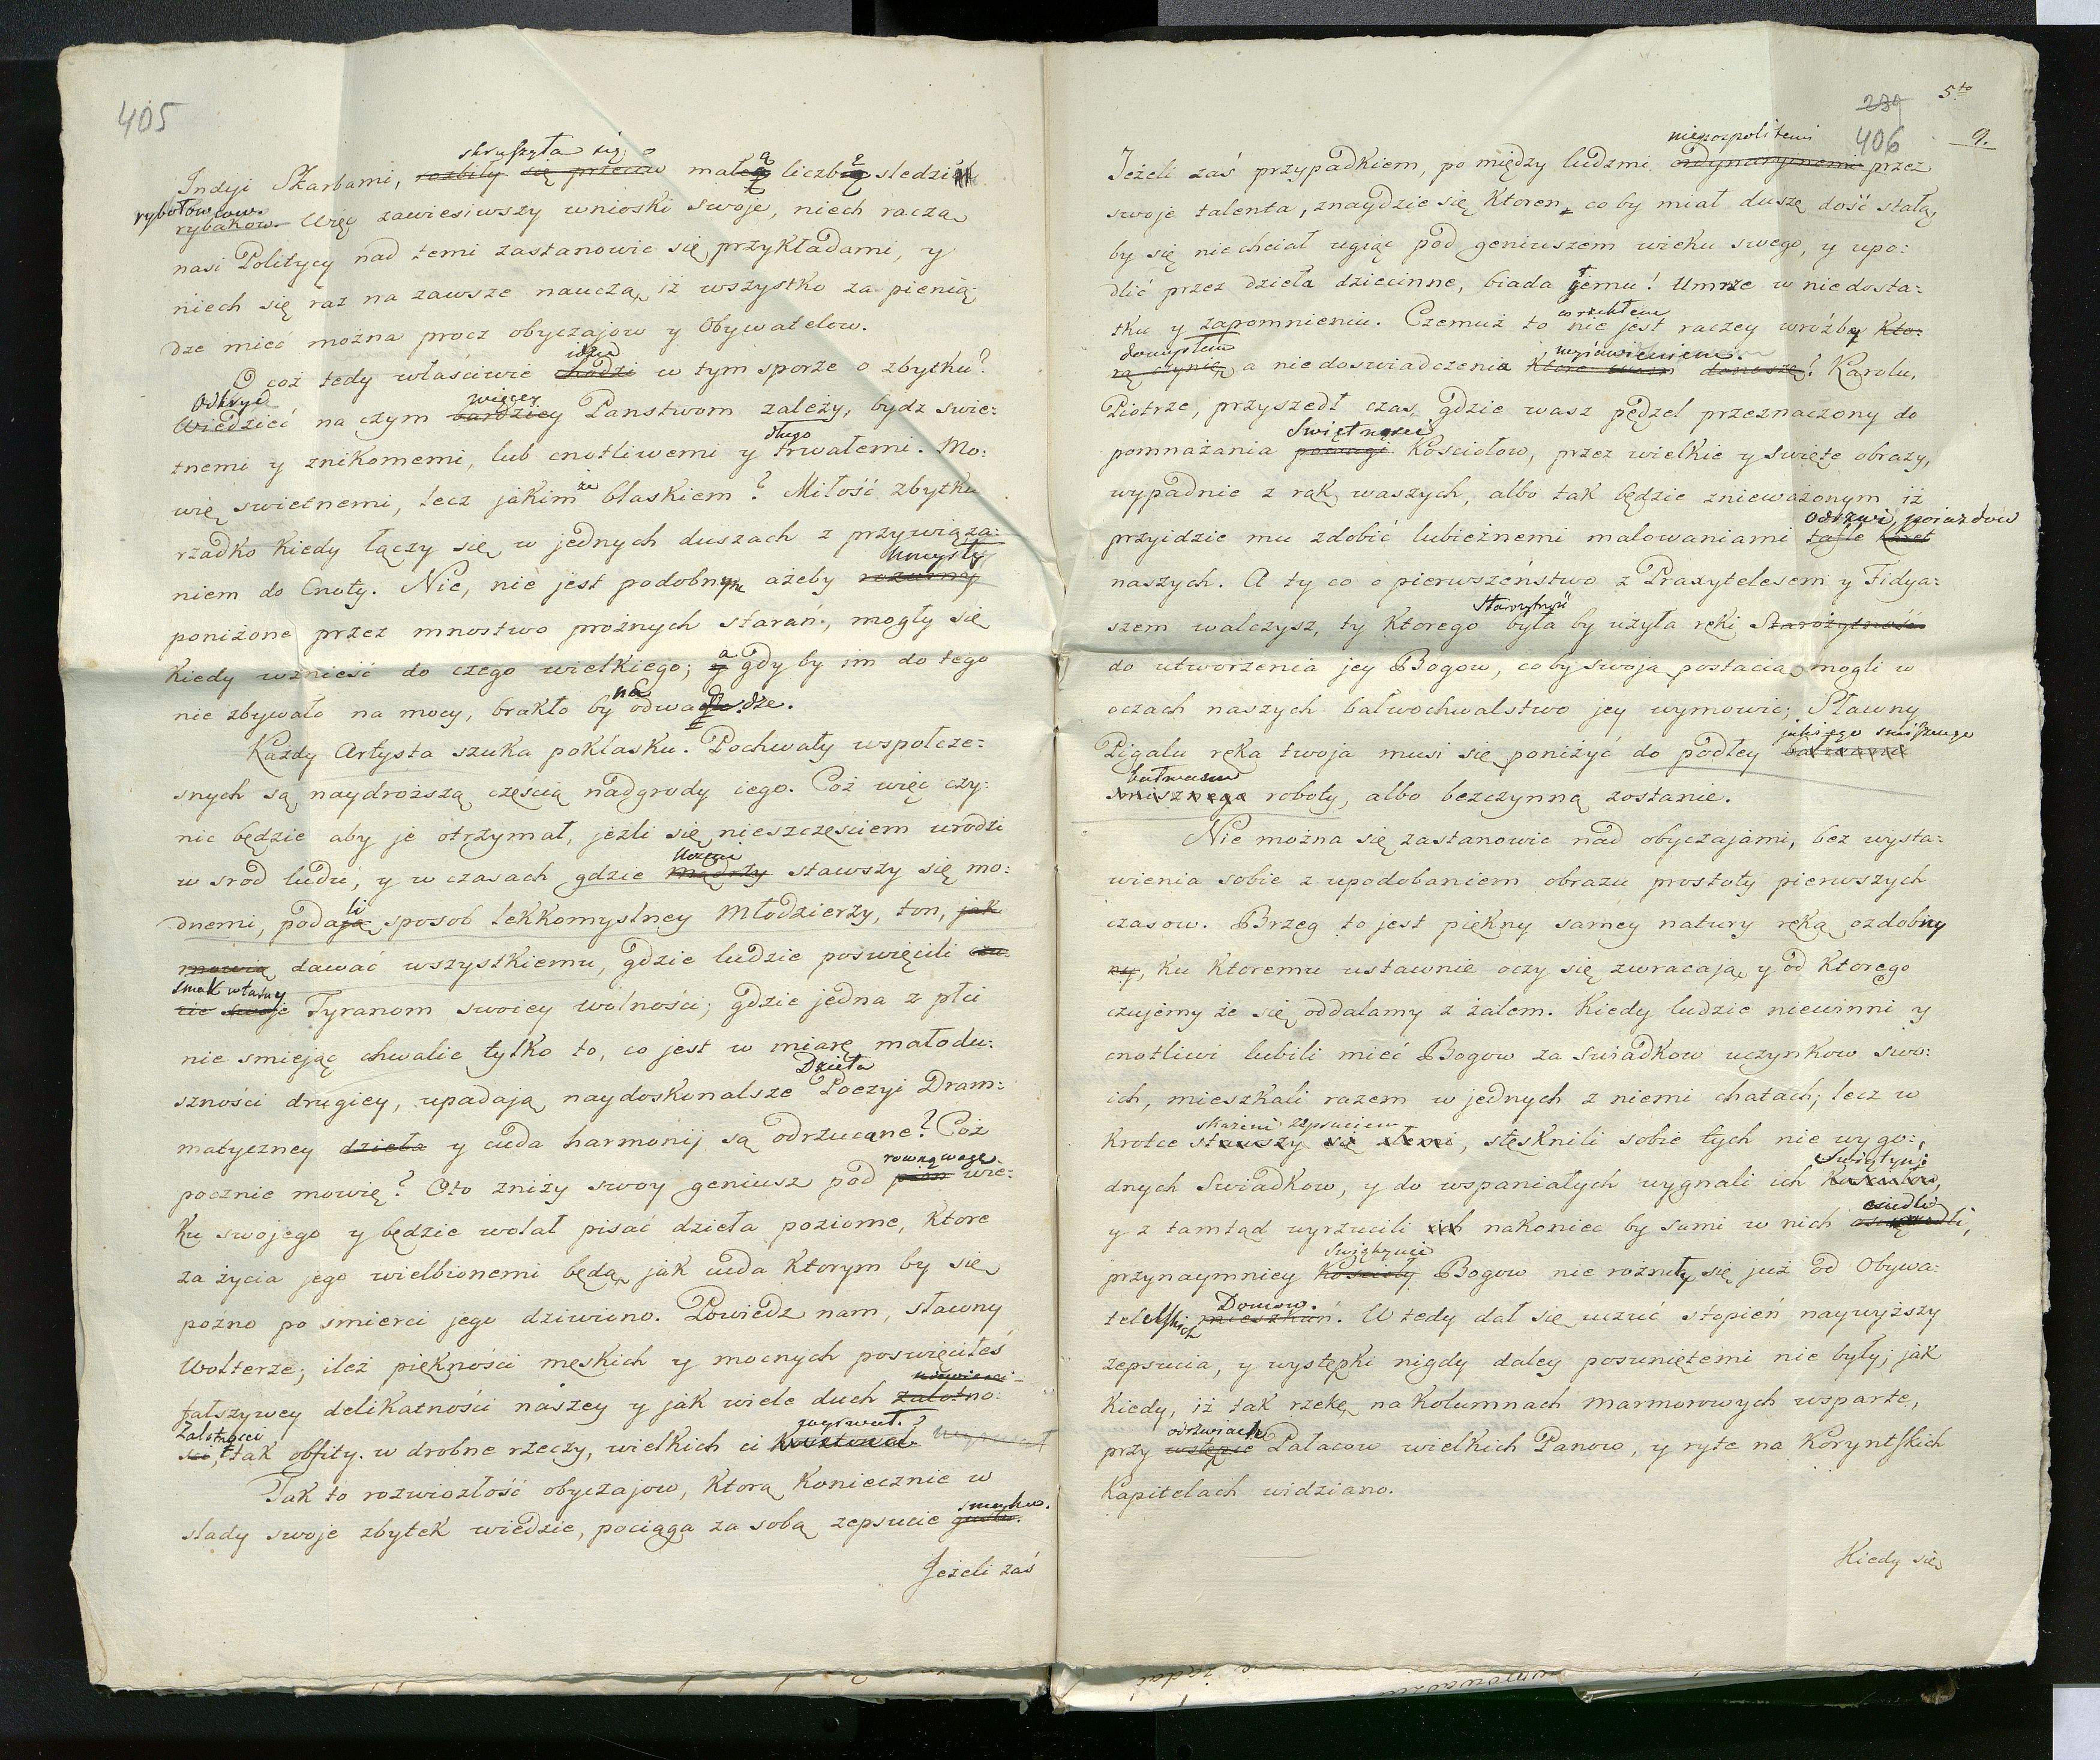 405
skruszyła się o
Indyi Skarbami, rozbiły się przeciw małą liczbę sledzi
rybołowcow.
rybakow. Więc zawiesiwszy wnioski swoje, niech raczą
nasi Politycy nad temi zastanowic się przykładami, y
niech się raz na zawsze nauczą, iż wszystko za pienią-
dze miec można procz obyczajow y Obywatelow.
idzie
O coż tedy właściwie chodzi w tym sporze o zbytku?
Odkryć więcey
Wiedzieć na czym bardziey Panstwom zależy, bydz swie:
długo
tnemi y znikomemi, lub cnotliwemi y trwałemi. Mo:
że
wię swietnemi, lecz jakim blaskiem? Miłość zbytku
rzadko kiedy łączy się w jednych duszach z przywiąza:
umysły
niem do Cnoty. Nie, nie jest podobnym ażeby rozumy
poniżone przez mnostwo prożnych starań, mogły się
a
kiedy wznieść do czego wielkiego; y gdyby im do tego
na
nie zbywało na mocy, brakło by odwadze.
Każdy Artysta szuka poklasku. Pochwały wspołcze:
snych są naydroższą częścią nadgrody iego. Coż więc czy:
nic będzie aby je otrzymał, jeżli się nieszczęsciem urodzi
Uczeni
w srod ludu, y w czasach gdzie mądrzy stawszy się mo:
li
dnemi, podają sposob lekkomyslney Młodzierzy, ton, jak
mowią dawać wszystkiemu, gdzie ludzie poswięcili czu:
smak własny
cie swoje Tyranom swoiey wolnosci; gdzie jedna z płci
nie smiejąc chwalic tylko to, co jest w miarę małodu:
Dzieła
szności drugiey, upadają naydoskonalsze Poezyi Dram:
matyczney dzieła y cuda harmonij są odrzucane? Coż
rowną wagę
pocznie mowię? Oto zniży swoy geniusz pod pion wie:
ku swojego y będzie wolał pisać dzieła poziome, ktore
za życia jego wielbionemi będą, jak cuda ktorym by się
pożno po smierci jego dziwiono. Powiedz nam, sławny
Wolterze; ileż piękności męskich y mocnych poswięciłeś
fałszywey delikatności naszey y jak wiele duch zalotno:
Zalotności wygrwał.
sci, tak obfity w drobne rzeczy, wielkich ci kosztował?
Tak to rozwiozłość obyczajow, ktorą koniecznie w
smaku.
slady swoje zbytek wiedzie, pociąga za sobą zepsucie gustu.
Jeżeli zaś
5to
239
406
9.
niepospolitemi
Jeżeli zaś przypadkiem, po między ludzmi ordynaryinemi przez
swoje talenta, znaydzie się ktoren, co by miał duszę dość stałą,
by się niechciał ugiąc pod geniuszem wieku swego, y upo:
dlić przez dzieła dziecinne, biada temu! Umrze w niedosta:
co rzekłem
tku y zapomnieniu. Czemuż to nie jest raczey wrożbą kto:
domysłem
rą czynię, a niedoswiadczenia ktore wam donoszę! Karolu,
Piotrze, przyszedł czas, gdzie wasz pędzel przeznaczony do
Swiętności
pomnażania powagi Kosciołow, przez wielkie y swięte obrazy,
wypadnie z rąk waszych, albo tak będzie znieważonym iż
odrzwi, pojazdow
przyidzie mu zdobić lubieżnemi malowaniami tafle karet
naszych. A ty co o pierwszeństwo z Praxytelesem y Fidya:
Starożytność
szem walczysz, ty ktorego była by użyła ręki Starożytność
do utworzenia jey Bogow, co by swoją postacią mogli w
oczach naszych bałwochwalstwo jey wymowic; Sławny
jakiego smiesznego
Pigalu ręka twoja musi się poniżyć do podłey bałwana
bałwana
smisznego roboty, albo bezczynną zostanie.
Nie można się zastanowic nad obyczajami, bez wysta:
wienia sobie z upodobaniem obrazu prostoty pierwszych
czasow. Brzeg to jest piękny samey natury ręką ozdobny
ny, ku ktoremu ustawnie oczy się zwracają y od ktorego
czujemy że się oddalamy z żalem. Kiedy ludzie niewinni y
cnotliwi lubili mieć Bogow za swiadkow uczynkow swo:
ich, mieszkali razem w jednych z niemi chatach; lecz w
skażeni zepsuciem
krotce stawszy się złemi, stęsknili sobie tych nie wygo:
Swiątyń
dnych Swiadkow, y do wspaniałych wygnali ich Kosciołow,
osiedli
y z tamtąd wyrzucili ich nakoniec by sami w nich osiedli,
Swiątynie
przynaymniey Koscioły Bogow nie rożniły się już od Obywa:
Domow.
telskich mieszkań. W tedy dał się uczuć stopień naywyższy
zepsucia, y występki nigdy daley posuniętemi nie były; jak
kiedy, iż tak rzekę, na kolumnach marmorowych wsparte,
odrzwiach
przy wstępie Pałacow wielkich Panow, y ryte na Koryntskich
Kapitelach widziano.
Kiedy się